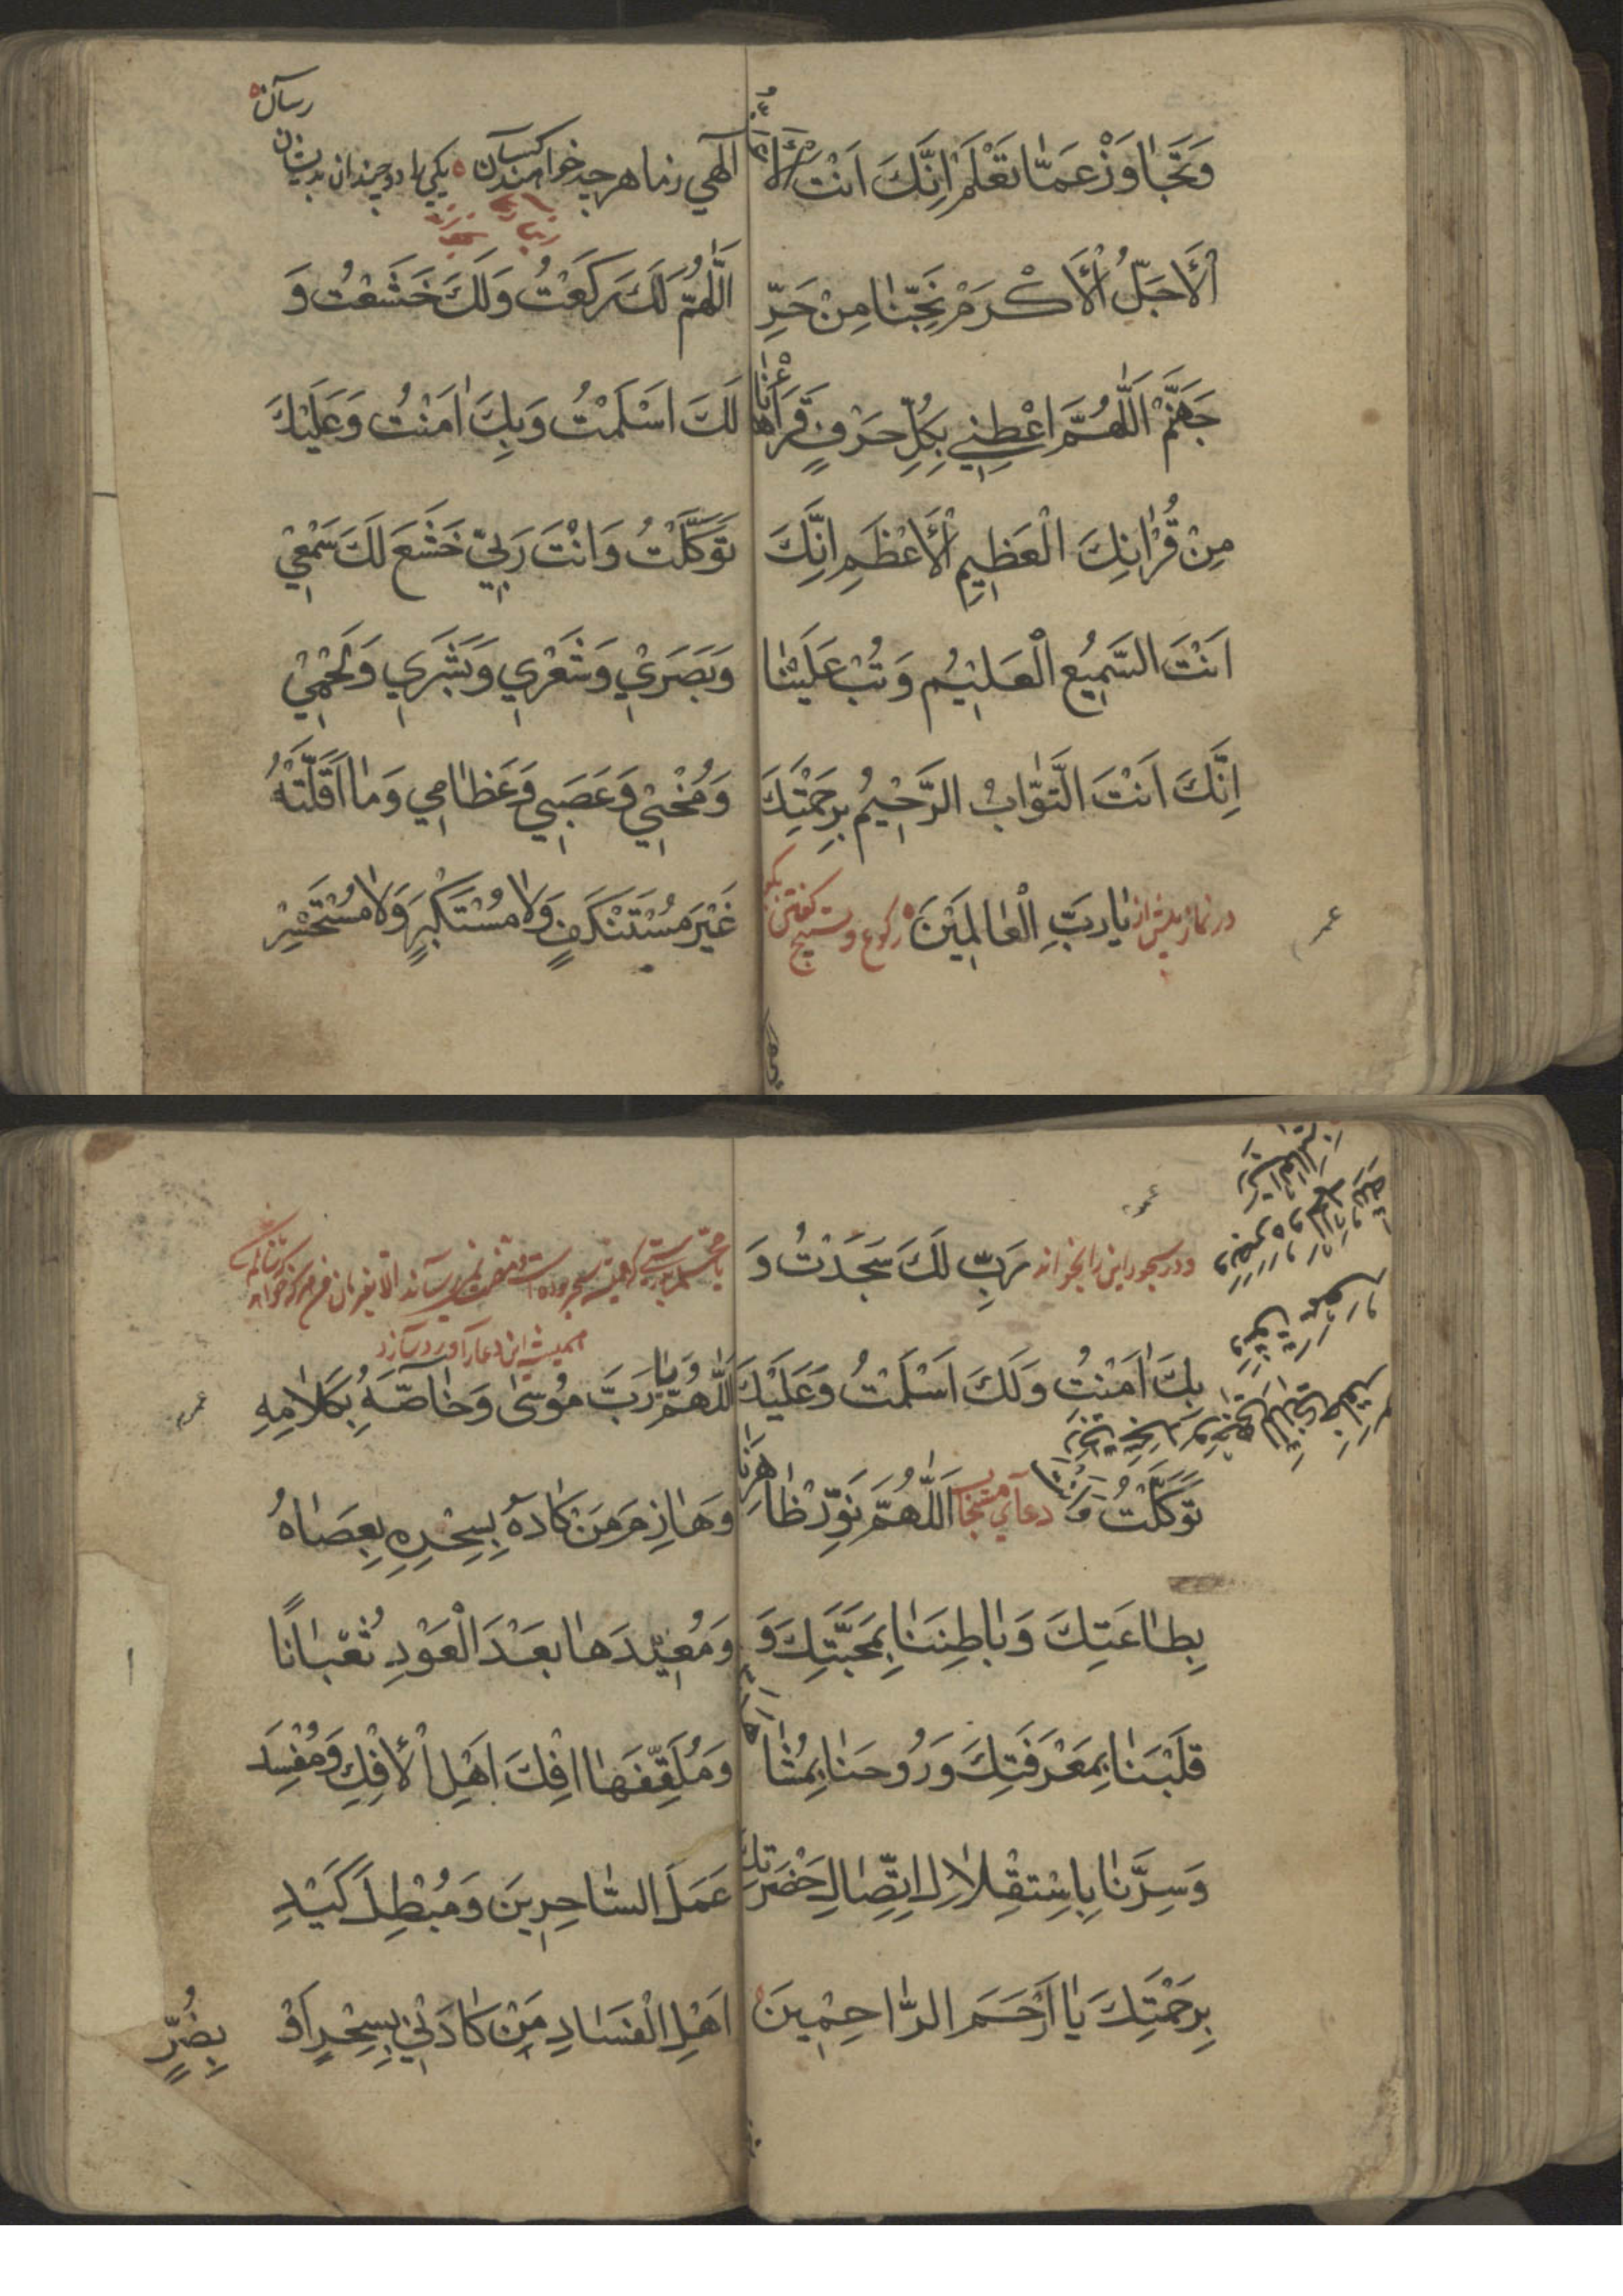 وَتَجٰاوَزْ عَمّٰا تَعْلَمْ اِنَّكَ اَنْتَ
الْاَجَلُّ الْاَكْرَمْ نَجِّنٰا مِنْ حَرِّ
جَهَنَّمْ اَللّٰهُمَّ اعْطِنِي بِكُلِّ حَرْفٍ قَرَأْنٰا
مِنْ قُرْاٰنِكَ الْعَظِيمِ الْاَعْظَمِ اِنَّكَ
اَنْتَ السَّمِيعُ الْعَلِيْمُ وَتُبْ عَلَيْنٰا
اِنَّكَ اَنْتَ التَّوّٰابُ الرَّحِيْمُ بِرَحْمَتِكَ
يٰا رَبَّ الْعٰالَمِيْنَ در نماز پيش از ركوع و تسبيح گفتن بگو
عمر
رسان
الٓهي زما هر چه خواهند كسان يكي را دو چندان بديشان
اللّٰهُمَّ لَكَ رَكَعْتُ وَلَكَ خَشَعْتُ وَ
لَكَ اَسْلَمْتُ وَبِكَ اٰمَنْتُ وَعَلَيْكَ
تَوَكَّلْتُ وَاَنْتَ رَبِّيْ خَشَعَ لَكَ سَمْعِيْ
وَبَصَرِيْ وَشَعْرِي وَبَشَرِي وَلَحْمِيْ
وَمُخْنِيْ وَعَصَبِي وَعَظٰامِي وَمٰا اَقَلَّتْهُ
غَيْرَ مُسْتَنْكَفٍ وَلٰا مُسْتَكْبِرٍ وَلٰا مُسْتَحْسِرْ
عمر
ودر سجود اين را بخواند رَبِّ لَكَ سَجَدْتُ وَ
بِكَ اٰمَنْتُ وَلَكَ اَسْلَمْتُ وَعَلَيْكَ
تَوَكَّلْتُ دعآي مستجاب اَللّٰهُمَّ نَوِّرْ ظٰاهِرَنٰا
بِطٰاعَتِكَ وَبٰاطِنَنٰا بِمَحَبَّتِكَ وَ
قَلْبَنٰا بِمَعْرَفَتِكَ وَرُوحَنٰا بِمُشٰاهَدَ
وَسِرَّنٰا بِاِسْتِقْلٰالِ اِتِّصٰالِ حَضْرَتِكَ
بِرَحْمَتِكَ يٰا اَرْحَمَ الرّٰاحِمِيْنَ
هميشه اين دعا را ورد سازد
اَللّٰهُمَّ يٰا رَبَّ مُوسٰى وَخٰاصَّهُ بِكَلٰامِهِ
عمر
وَهٰازِمَ مَنْ كٰادَهُ بِسِحْرِهِ بِعِصٰاهُ
وَمُعِيْدَهٰا بَعْدَ الْعَوْدِ ثُعْبٰانًا
وَمُلَقِّفَهٰا اِفْكَ اَهْلِ الْاِفْكِ وَمُفْسِدَ
عَمَلَ السّٰاحِرِينَ وَمُبْطِلَ كَيْدِ
اَهْلِ الْفَسٰادِ مَنْ كٰادَنِيْ بِسِحْرٍ اَوْ
بِضُرٍّ